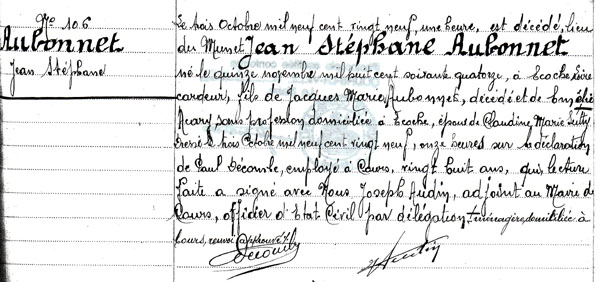 No 106
Aubonnet
Jean Stéphane
Le trois Octobre mil neuf cent vingt neuf, une heure, est décédé, lieu
du Munet Jean Stéphane Aubonnet
né le quinze novembre mil huit cent soixante quatorze, à Ecoche Loire
cardeur, fils de Jacques Marie Aubonnet, décédé et de
sans profession domiciliée à Ecoche, époux de Claudine Marie
Dressé le trois Octobre mil neuf cent vingt neuf, onze heures sur la déclaration
de Paul Décombe, employé à Cours, vingt huit ans, qui, lecture
faite a signé avec Nous Joseph Audin, adjoint au Maire de
Cours, officier d'Etat Civil par délégation. + ménagère, domiciliée à
Cours, renvoi approuvé